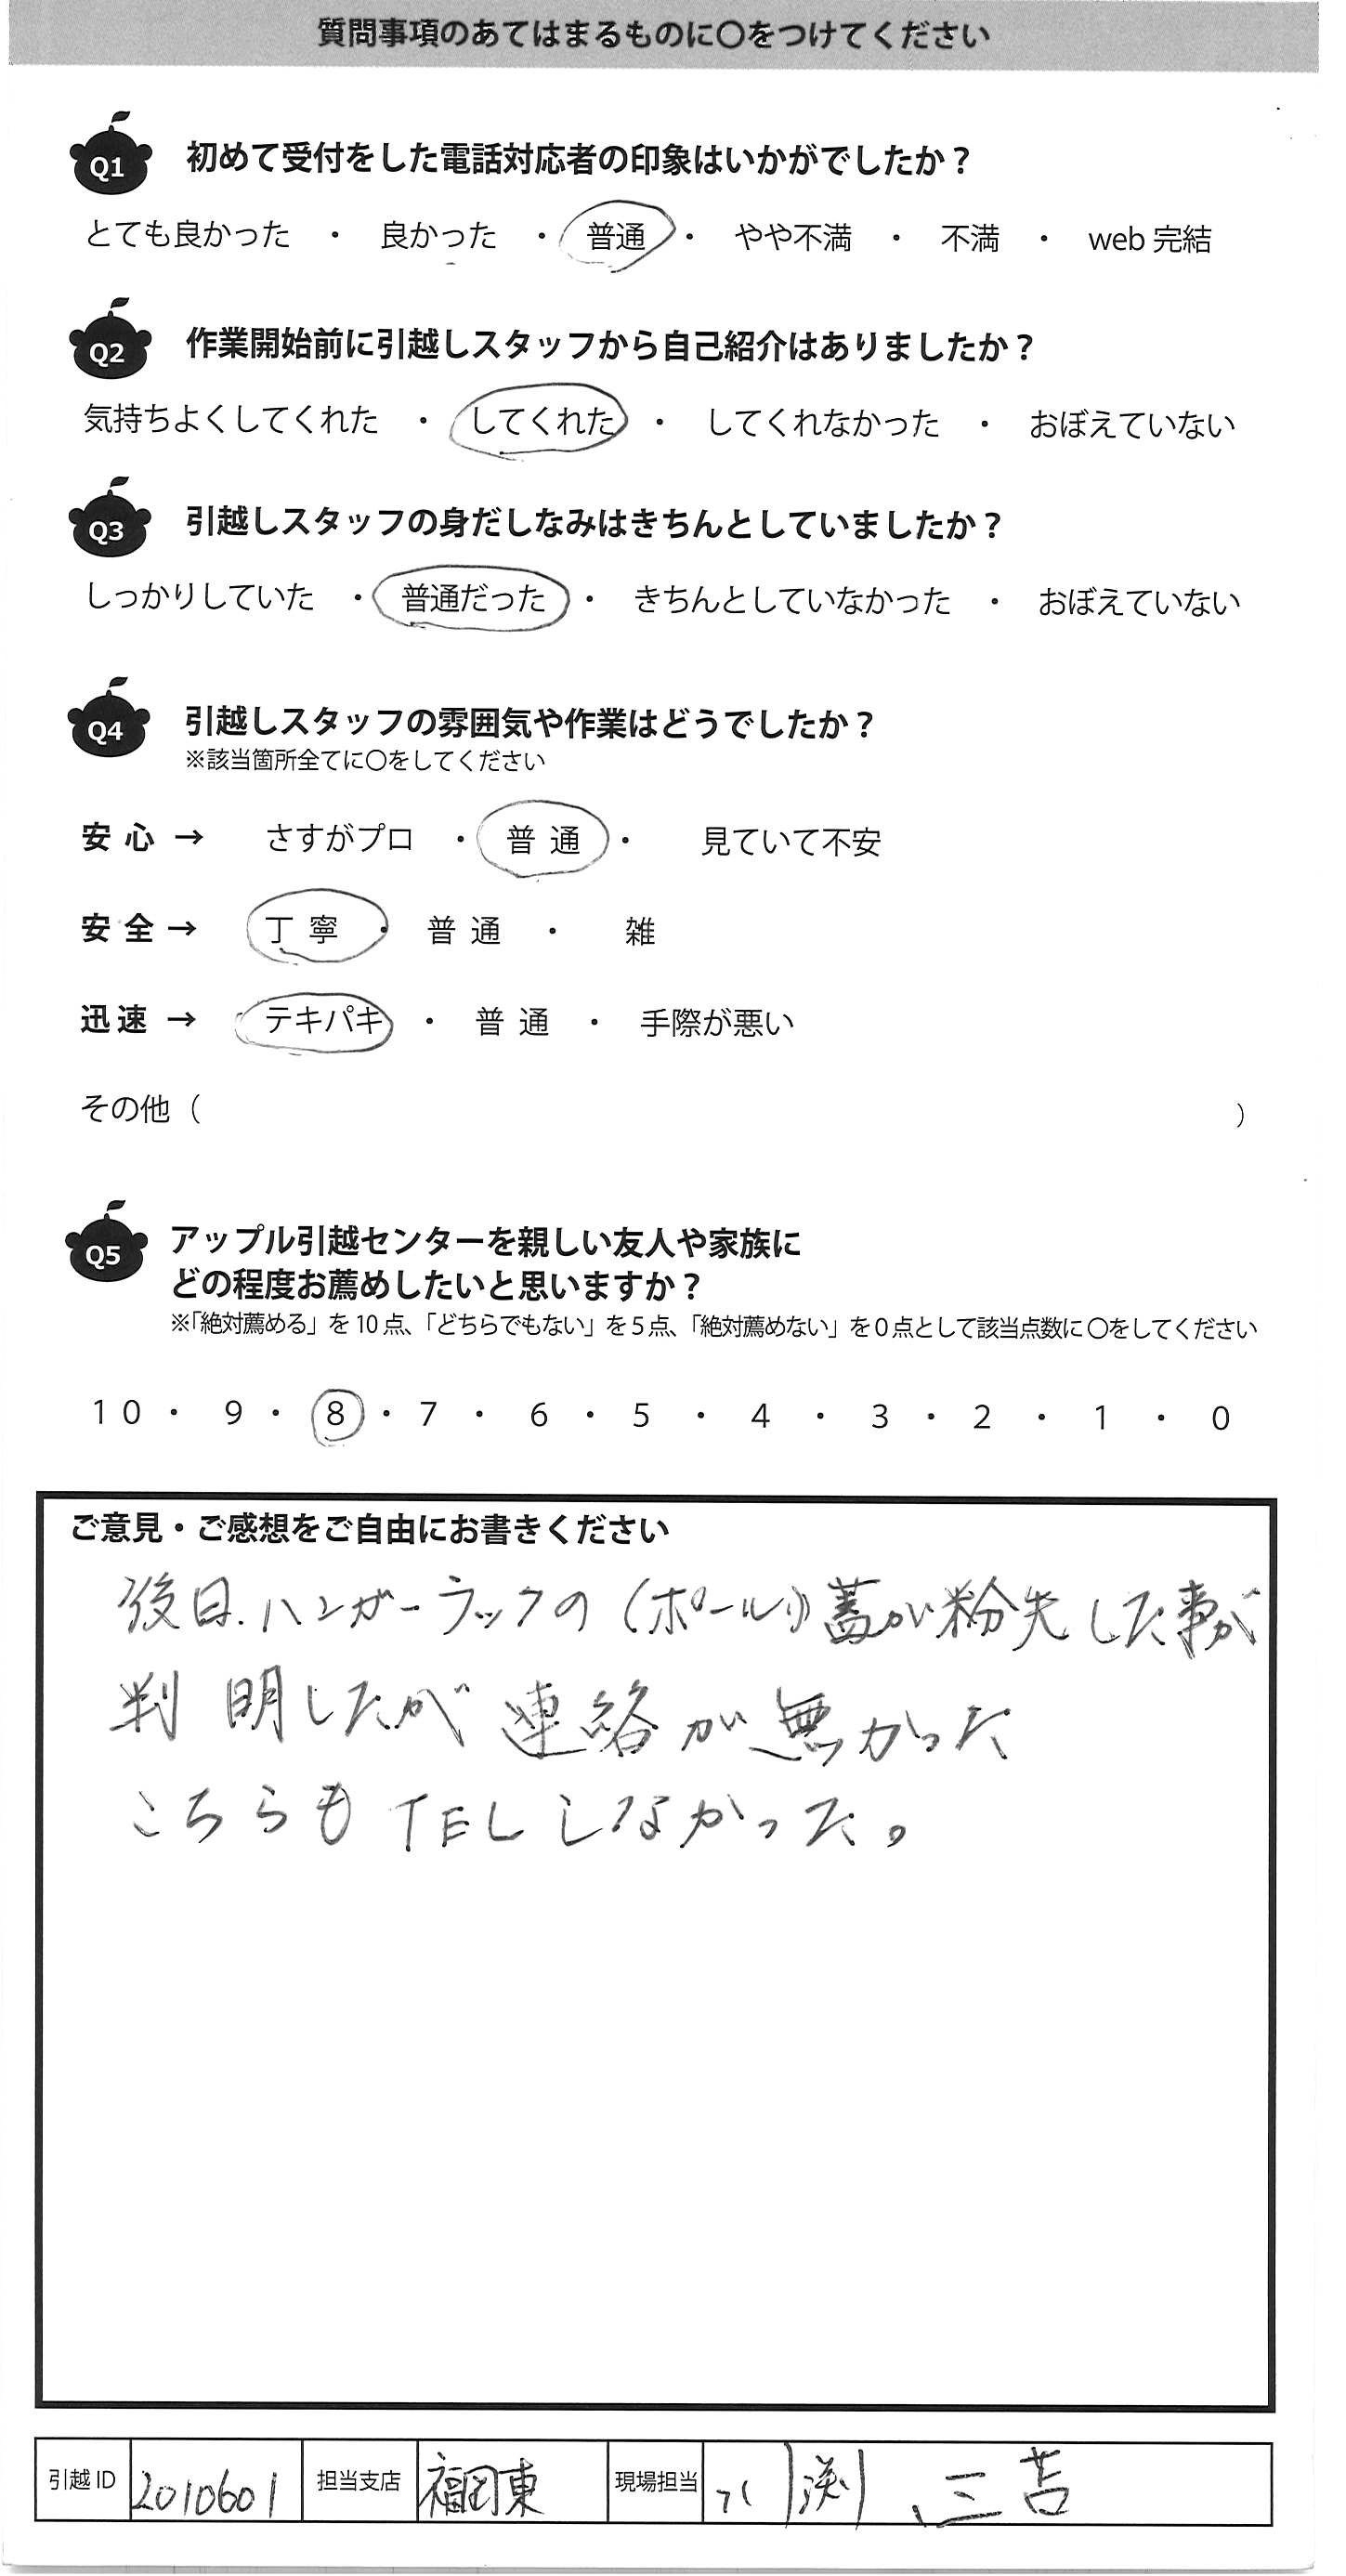 質問事項のあてはまるものに〇をつけてください
Q1 初めて受付をした電話対応者の印象はいかがでしたか？
とても良かった ・ 良かった ・ 普通 ・ やや不満 ・ 不満 ・ web 完結
Q2 作業開始前に引越しスタッフから自己紹介はありましたか？
気持ちよくしてくれた ・ してくれた ・ してくれなかった ・ おぼえていない
Q3 引越しスタッフの身だしなみはきちんとしていましたか？
しっかりしていた ・ 普通だった ・ きちんとしていなかった ・ おぼえていない
Q4 引越しスタッフの雰囲気や作業はどうでしたか？
※該当箇所全てに〇をしてください
安心 → さすがプロ ・ 普通 ・ 見ていて不安
安全 → 丁寧 ・ 普通 ・ 雑
迅速 → テキパキ ・ 普通 ・ 手際が悪い
その他（ ）
Q5 アップル引越センターを親しい友人や家族に
どの程度お薦めしたいと思いますか？
※「絶対薦める」を 10 点、「どちらでもない」を 5 点、「絶対薦めない」を 0 点として該当点数に〇をしてください
10 ・ 9 ・ 8 ・ 7 ・ 6 ・ 5 ・ 4 ・ 3 ・ 2 ・ 1 ・ 0
ご意見・ご感想をご自由にお書きください
後日、ハンガーラックの（ポール）蓋が粉失した事が
判明したが連絡が無かった
こちらもTELしなかった。
引越 ID 2010601 担当支店 福岡東 現場担当 三苫